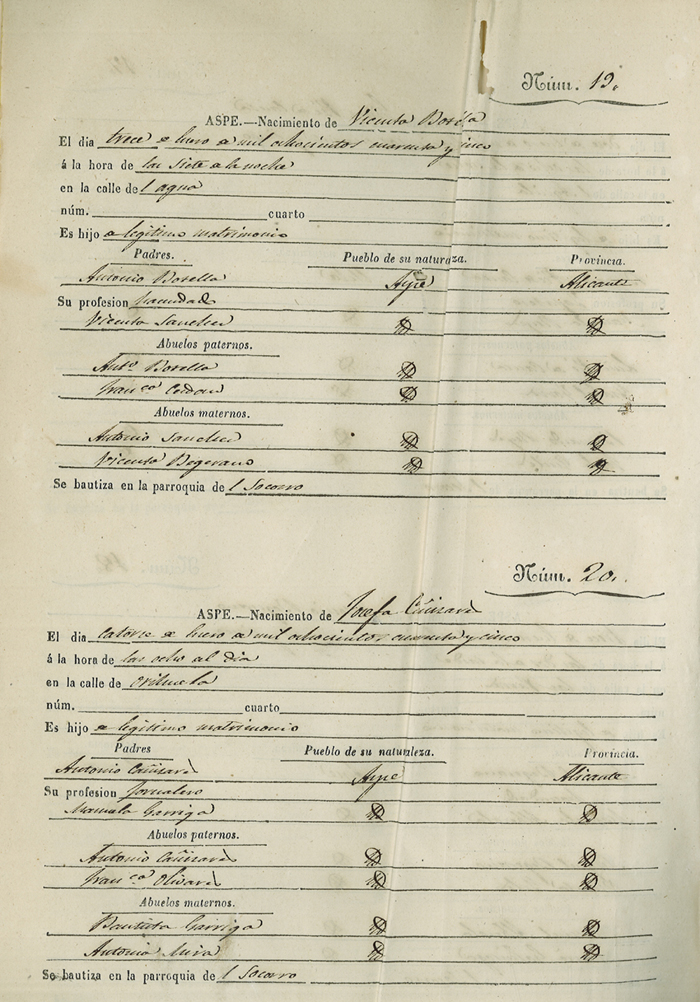 Núm. 19.
ASPE.—Nacimiento de Vicenta Botélla
El dia trece de Enero de mil ochocientos cuarenta y cinco
á la hora de las siete de la noche
en la calle del agua
núm. cuarto
Es hijo de legitimo matrimonio
Padres. Pueblo de su naturaza. Provincia.
Antonio Botella Aspe Alicante
Su profesion hacendado
Vicenta Sanchez D D
Abuelos paternos.
Antº Botella D D
Francª Cerdan D D
Abuelos maternos.
Antonio Sanchez D D
Vicenta Begerano D D
Se bautiza en la parroquia del Socorro
Núm. 20.
ASPE.—Nacimiento de Josefa Cañizares
El dia catorce de Enero de mil ochocientos cuarenta y cinco
á la hora de las ocho del dia
en la calle de orihuela
núm. cuarto
Es hijo de legitimo matrimonio
Padres Pueblo de su naturaleza. Provincia.
Antonio Cañizares Aspe Alicante
Su profesion Jornalero
Manuela Garriga D D
Abuelos paternos.
Antonio Cañizares D D
Francª Olivares D D
Abuelos maternos.
Bautista Garriga D D
Antonia Mira D D
Se bautiza en la parroquia del Socorro